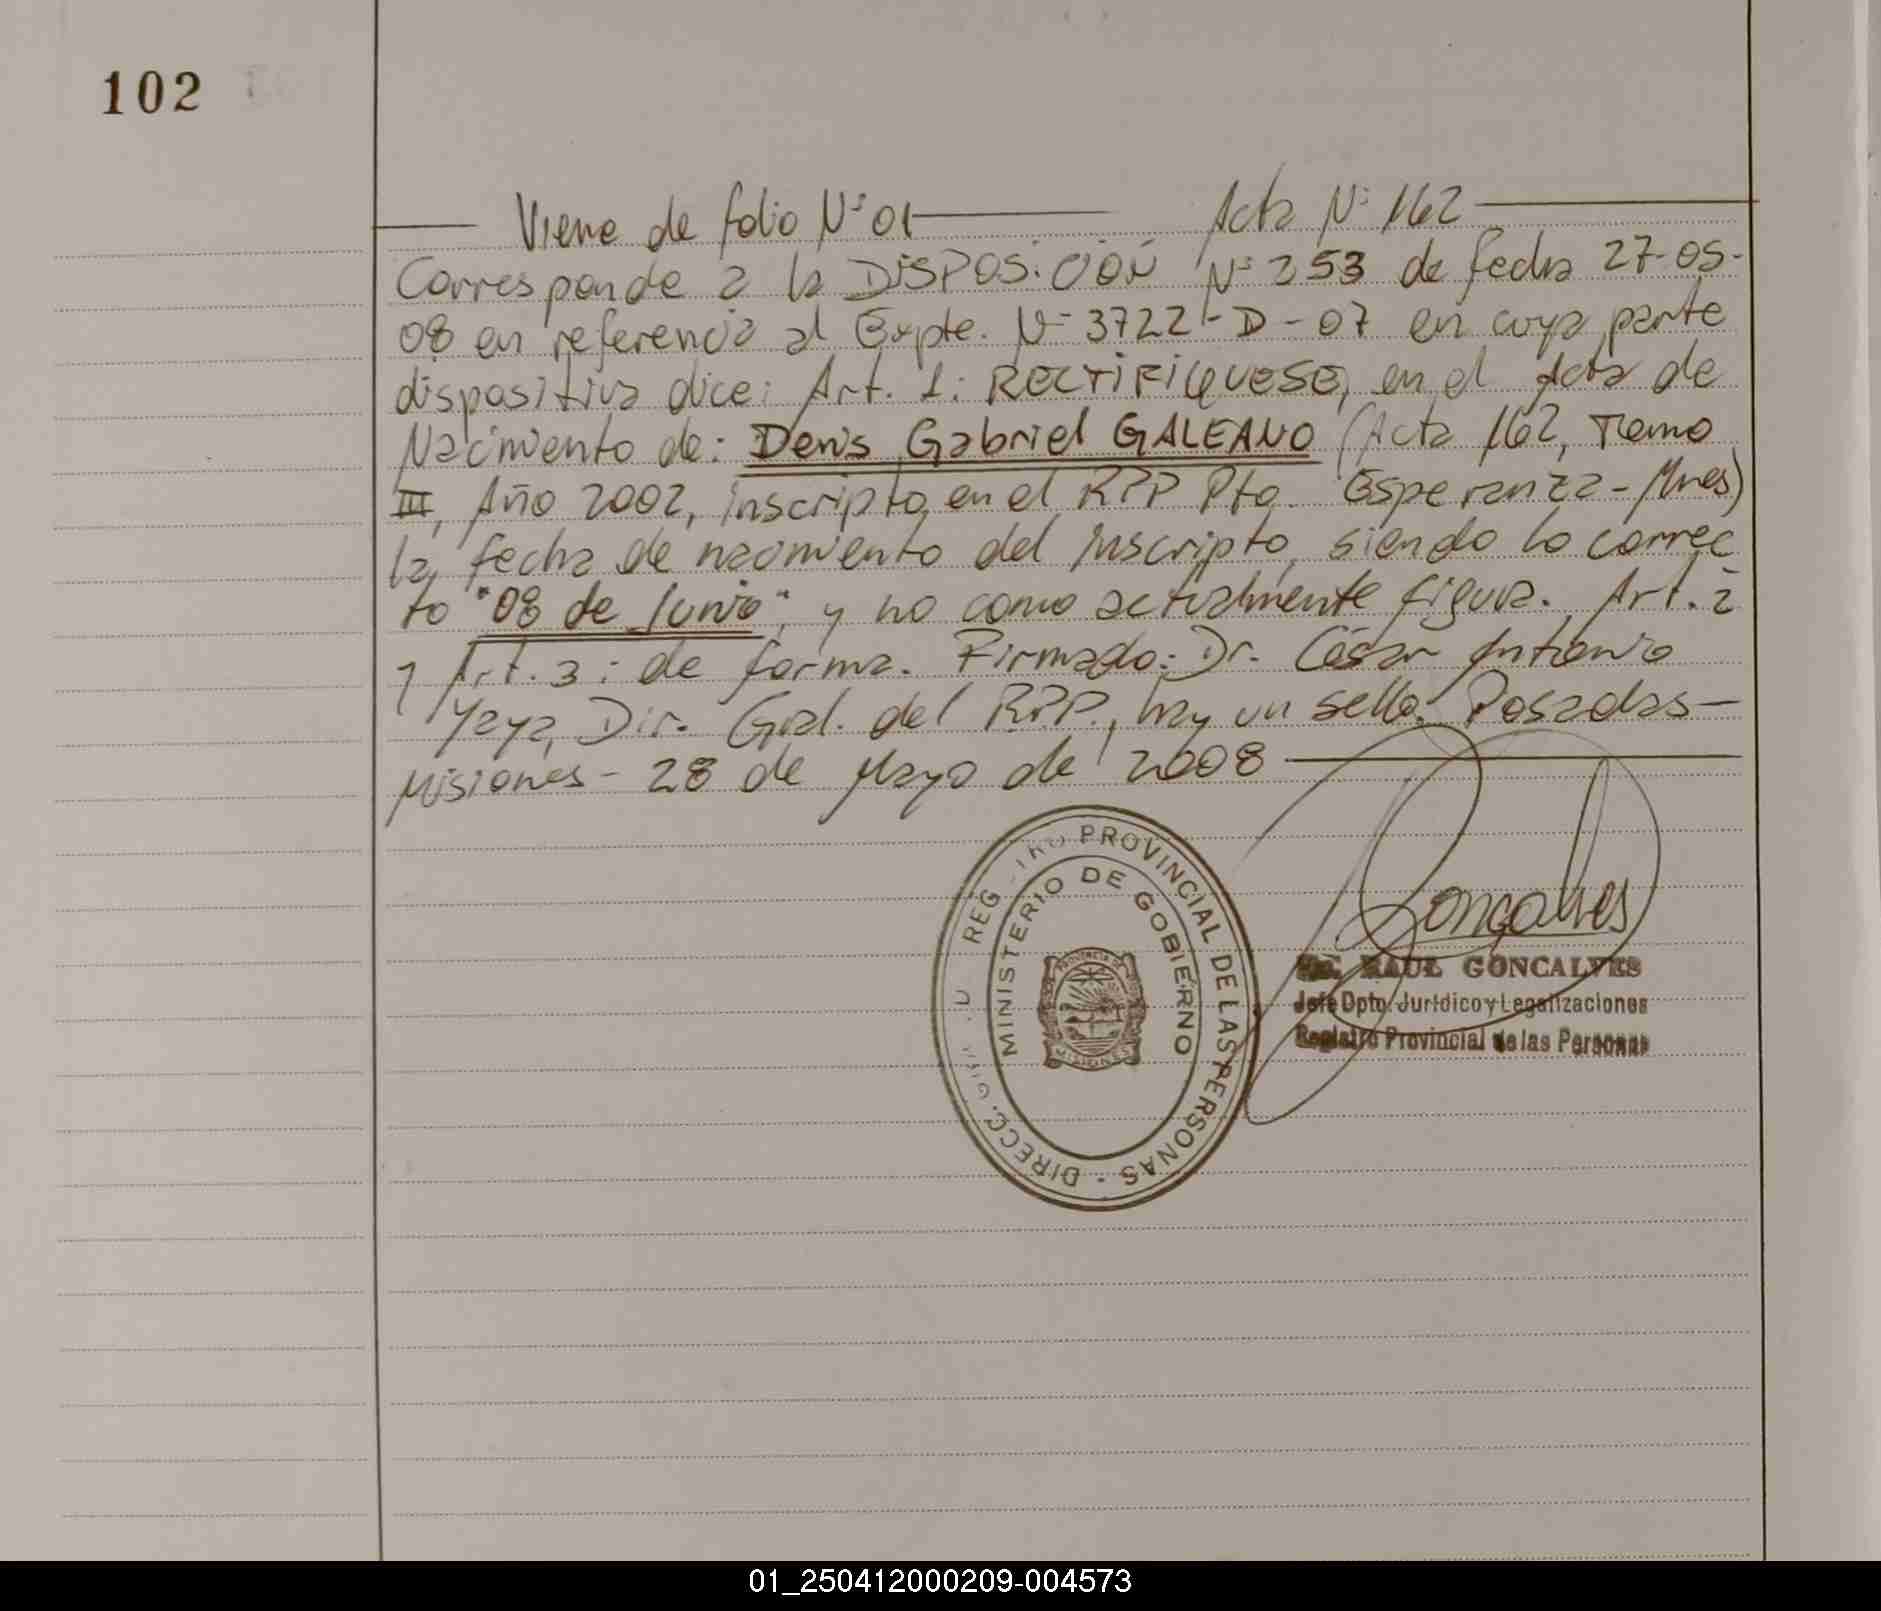 102
Viene de folio Nº 01 Acta Nº 162
Corresponde a la DISPOSICIÓN Nº 253 de fecha 27-05-
08 en referencia al Expte. Nº 3722-D-07 en cuya parte
dispositiva dice: Art. 1: RECTIFIQUESE, en el Acta de
Nacimiento de: Denis Gabriel GALEANO (Acta 162, Tomo
III, Año 2002, inscripto en el RPP Pto. Esperanza-Mnes)
la fecha de nacimiento del inscripto, siendo lo correc
to "08 de Junio", y no como actualmente figura. Art. 2
y Art. 3: de forma. Firmado: Dr. César Antonio
Yaya, Dir. Gral. del RPP., hay un sello. Posadas-
Misiones- 28 de Mayo de 2008
PROVINCIAL DE LAS PERSONAS · DIRECC.
MINISTERIO DE GOBIERNO
PROVINCIA D
MISIONES
Goncalves
RAUL GONCALVES
Jefe Dpto. Jurídico y Legalizaciones
Registro Provincial de las Personas
01_250412000209-004573